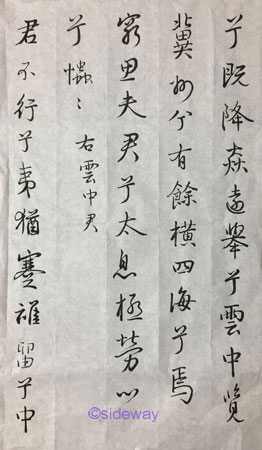 兮既降猋遠舉兮雲中覽
冀州兮有餘橫四海兮焉
窮思夫君兮太息極勞心
兮忡〻 右雲中君
君不行兮夷猶蹇誰留兮中
©sideway